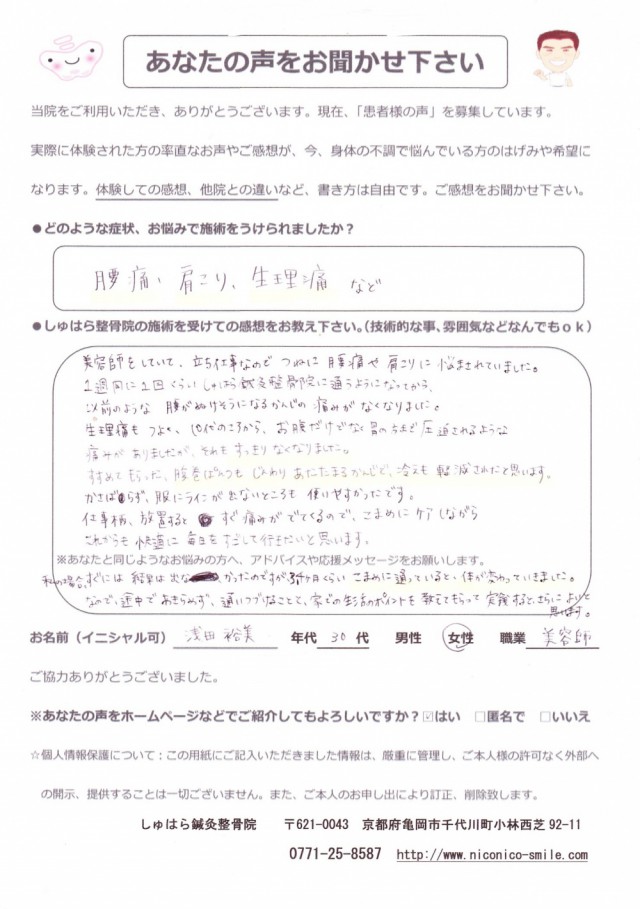 あなたの声をお聞かせ下さい
当院をご利用いただき、ありがとうございます。現在、「患者様の声」を募集しています。
実際に体験された方の率直なお声やご感想が、今、身体の不調で悩んでいる方のはげみや希望に
なります。体験しての感想、他院との違いなど、書き方は自由です。ご感想をお聞かせ下さい。
●どのような症状、お悩みで施術をうけられましたか？
腰痛、肩こり、生理痛 など
●しゅはら整骨院の施術を受けての感想をお教え下さい。（技術的な事、雰囲気などなんでもｏｋ）
美容師をしていて、立ち仕事なので つねに 腰痛や 肩こりに 悩まされていました。
1週間に1回ぐらい しゅはら鍼灸整骨院に 通うようになってから、
以前のような 腰がぬけそうになるかんじの 痛みが なくなりました。
生理痛も つよく、10代のころから、お腹だけでなく 胃の方まで 圧迫されるような
痛みが ありましたが、それも すっきり なくなりました。
すすめて もらった、腹巻ぱんつも じんわり あたたまる かんじで、冷えも 軽減されたと思います。
かさばらず、服にラインが 出ないところも 使いやすかったです。
仕事柄、放置すると すぐ痛みが でてくるので、こまめに ケア しながら
これからも 快適に 毎日を すごして行きたいと 思います。
※あなたと同じようなお悩みの方へ、アドバイスや応援メッセージをお願いします。
私の場合、すぐには 結果は 出なかったのですが 3ヶ月ぐらい こまめに 通っていると、体が変わっていきました。
なので、途中で あきらめず、通いつづけることで、家での生活のポイントを 教えてもらって 実践すると、さらに よいと
思います。
お名前（イニシャル可） 浅田 裕美 年代 30 代 男性 女性 職業 美容師
ご協力ありがとうございました。
※あなたの声をホームページなどでご紹介してもよろしいですか？ ☑はい □匿名で □いいえ
☆個人情報保護について：この用紙にご記入いただきました情報は、厳重に管理し、ご本人様の許可なく外部へ
の開示、提供することは一切ございません。また、ご本人のお申し出により訂正、削除致します。
しゅはら鍼灸整骨院 〒621-0043 京都府亀岡市千代川町小林西芝 92-11
0771-25-8587 http://www.niconico-smile.com